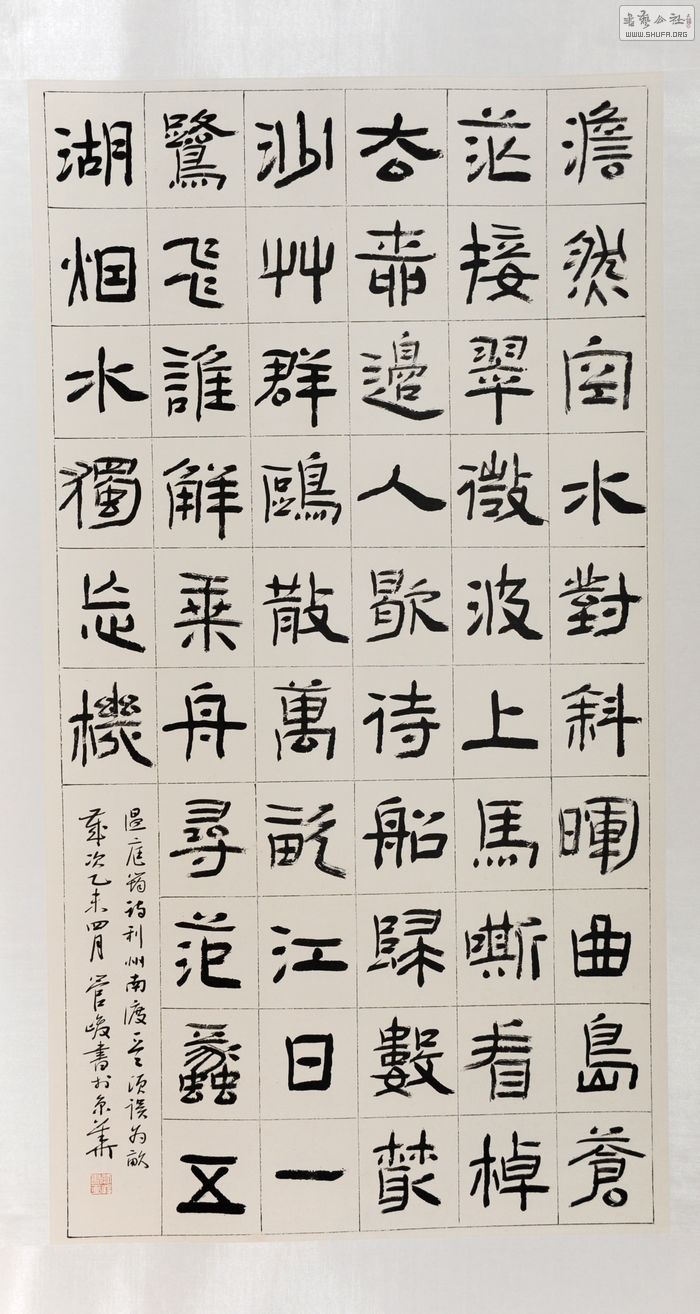 澹然空水對斜暉曲島蒼
茫接翠微波上馬嘶看棹
去柳邊人歇待船歸數叢
沙艸群鷗散萬畝江日一
鷺飛誰解乘舟尋范蠡五
湖烟水獨忘機
温庭筠詩利州南渡頃誤為畝
歲次乙未四月管峻書於京華
書藝公社
WWW.SHUFA.ORG